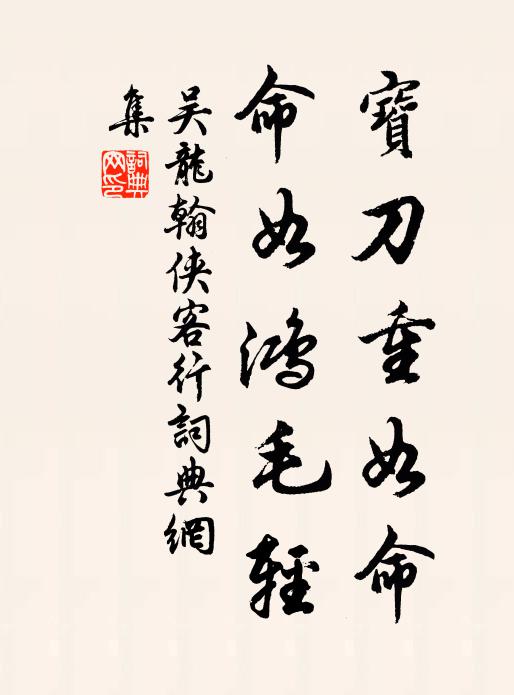 寶刀重如命
命如鴻毛輕
吳龍翰俠客行詞典網
集
詞典
网印